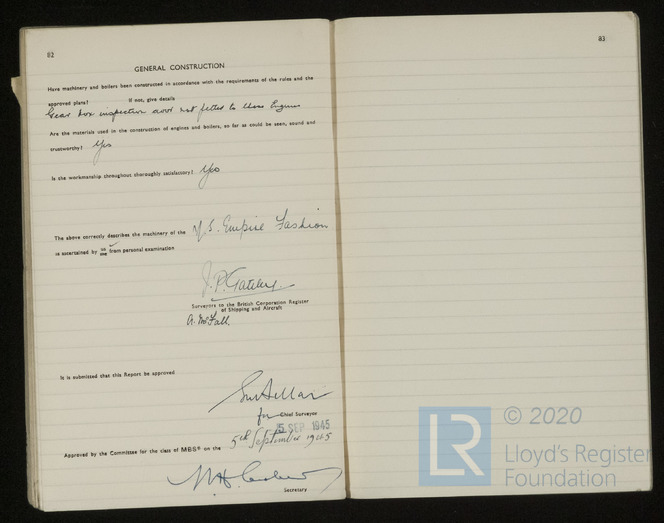 82
GENERAL CONSTRUCTION
Have machinery and boilers been constructed in accordance with the requirements of the rules and the
approved plans? If not, give details
Gear box inspection door not fitted to these Engines
Are the materials used in the construction of engines and boilers, so far as could be seen, sound and
trustworthy? Yes
Is the workmanship throughout thoroughly satisfactory? Yes
The above correctly describes the machinery of the S. Empire Fashion
as ascertained by us/me from personal examination
J.P. Gateley.
Surveyors to the British Corporation Register
of Shipping and Aircraft
A. McFall.
It is submitted that this Report be approved
for Chief Surveyor
5 SEP 1945
Approved by the Committee for the class of MBS* on the 5th September 1945
Secretary
83
LR
© 2020
Lloyd's Register
Foundation